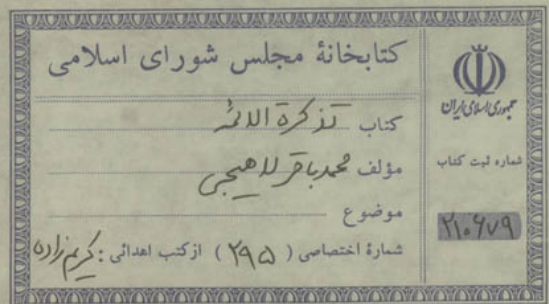 کتابخانهٔ مجلس شورای اسلامی
کتاب تذکرة الائمه
مؤلف محمدباقر لاهیجی
موضوع
شمارهٔ اختصاصی ( ۲۹۵ ) از کتب اهدائی : کریم زاده
جمهوری اسلامی ایران
شماره ثبت کتاب
۲۱۰۶۷۹